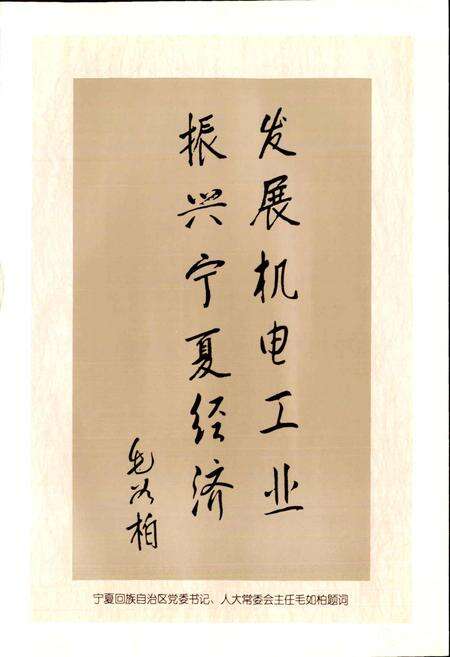 发展机电工业
振兴宁夏经济
毛如柏
宁夏回族自治区党委书记、人大常委会主任毛如柏题词